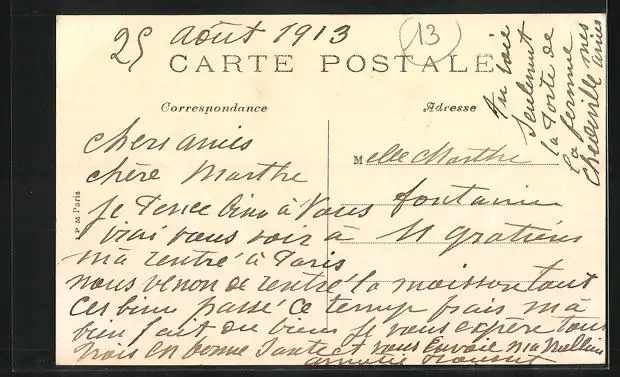 25 août 1913
13
CARTE POSTALE
Correspondance
Adresse
chers amies
chère Marthe
je Pence bien à vous
irai vous voir à St gratien
ma rentré à Paris
nous venon de rentré la moisson tout
ces bien passé ce temp frais ma
bien fait du bien je vous espère tous
trois en bonne Santé et vous Envoie ma Meilleur
amitié
Melle Marthe
fontaine
on voie
Seulement
la Porte de
la ferme
mes
amies
P M Paris